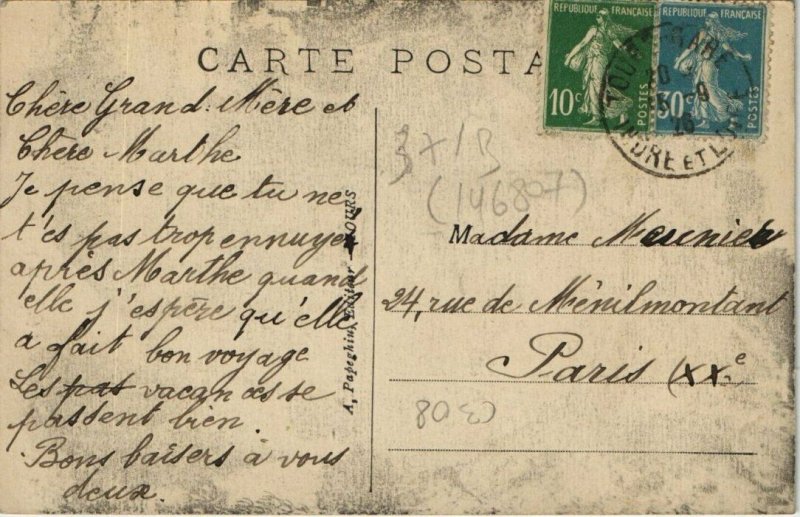 CARTE POSTA
RÉPUBLIQUE FRANÇAISE
10c
POSTES
RÉPUBLIQUE FRANÇAISE
30c
POSTES
TOURS GARE
INDRE ET LOIRE
Chère Grand. Mère et
Chère Marthe
Je pense que tu ne
t'es pas trop ennuyée
après Marthe quand
elle j'espère qu'elle
a fait bon voyage
Les pas vacances se
passent bien.
Bons baisers à vous
deux.
A. Papeghin, Editeur - TOURS
37/B
(146807)
Madame Meunier
24, rue de Ménilmontant
Paris (XX.e